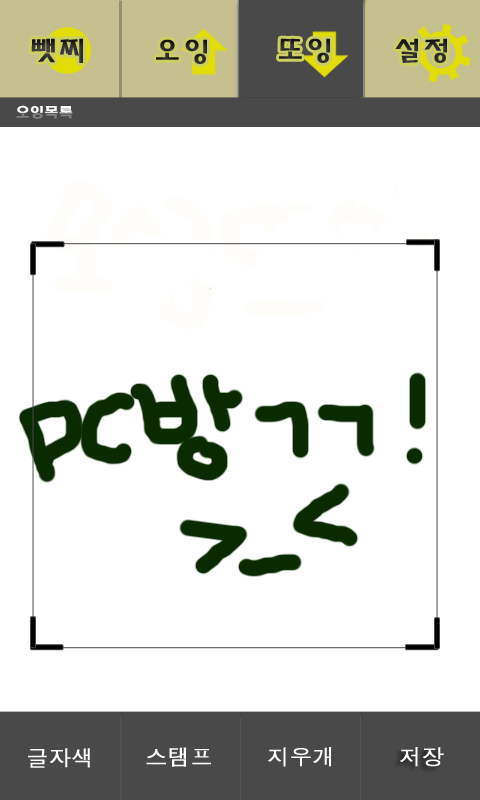 뺏찌 오잉 또잉 설정
오잉목록
PC방 ㄱㄱ!
>_<
글자색 스탬프 지우개 저장